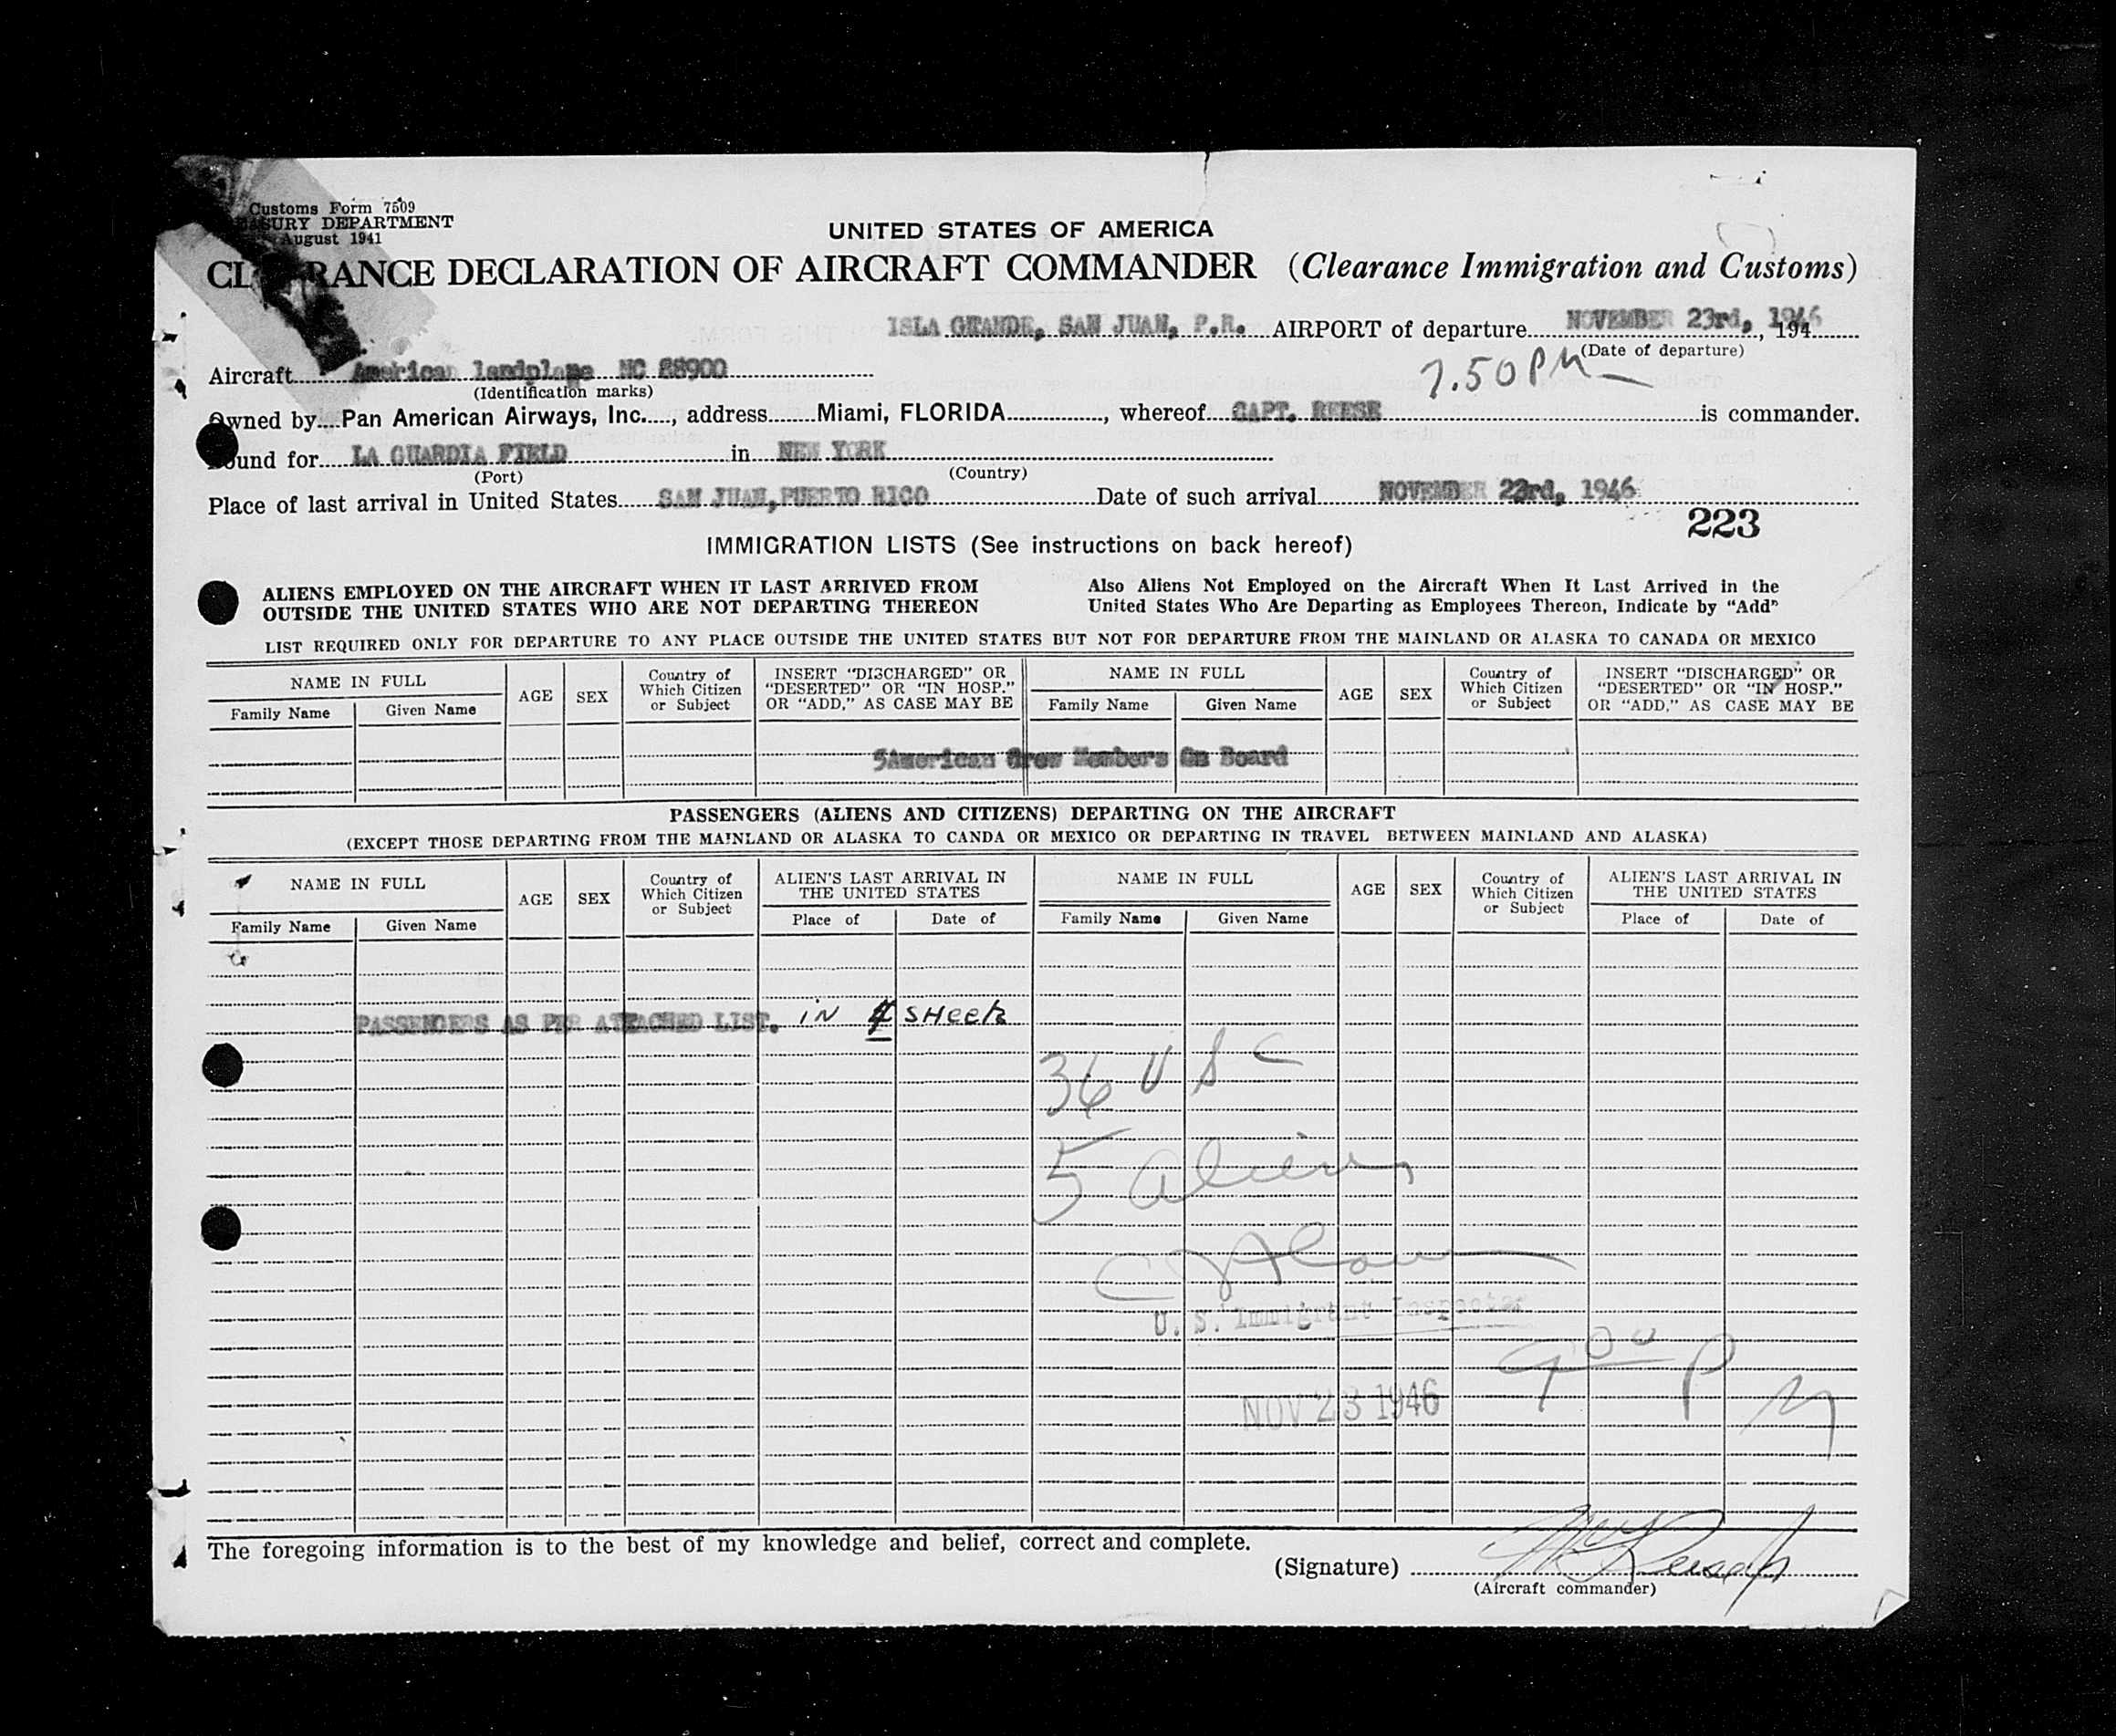 Customs Form 7509
TREASURY DEPARTMENT
August 1941
UNITED STATES OF AMERICA
CLEARANCE DECLARATION OF AIRCRAFT COMMANDER (Clearance Immigration and Customs)
ISLA GRANDE, SAN JUAN, P.R. AIRPORT of departure NOVEMBER 23rd, 1946, 194
(Date of departure)
7.50 PM
Aircraft American landplane NC 88900
(Identification marks)
Owned by Pan American Airways, Inc., address Miami, FLORIDA, whereof CAPT. REESE is commander.
Bound for LA GUARDIA FIELD in NEW YORK
(Port) (Country)
Place of last arrival in United States SAN JUAN, PUERTO RICO Date of such arrival NOVEMBER 23rd, 1946
223
IMMIGRATION LISTS (See instructions on back hereof)
ALIENS EMPLOYED ON THE AIRCRAFT WHEN IT LAST ARRIVED FROM
OUTSIDE THE UNITED STATES WHO ARE NOT DEPARTING THEREON
Also Aliens Not Employed on the Aircraft When It Last Arrived in the
United States Who Are Departing as Employees Thereon, Indicate by "Add"
LIST REQUIRED ONLY FOR DEPARTURE TO ANY PLACE OUTSIDE THE UNITED STATES BUT NOT FOR DEPARTURE FROM THE MAINLAND OR ALASKA TO CANADA OR MEXICO
NAME IN FULL
Family Name Given Name
AGE
SEX
Country of
Which Citizen
or Subject
INSERT "DISCHARGED" OR
"DESERTED" OR "IN HOSP."
OR "ADD," AS CASE MAY BE
NAME IN FULL
Family Name Given Name
AGE
SEX
Country of
Which Citizen
or Subject
INSERT "DISCHARGED" OR
"DESERTED" OR "IN HOSP."
OR "ADD," AS CASE MAY BE
5American Crew Members On Board
PASSENGERS (ALIENS AND CITIZENS) DEPARTING ON THE AIRCRAFT
(EXCEPT THOSE DEPARTING FROM THE MAINLAND OR ALASKA TO CANDA OR MEXICO OR DEPARTING IN TRAVEL BETWEEN MAINLAND AND ALASKA)
NAME IN FULL
Family Name Given Name
AGE
SEX
Country of
Which Citizen
or Subject
ALIEN'S LAST ARRIVAL IN
THE UNITED STATES
Place of Date of
NAME IN FULL
Family Name Given Name
AGE
SEX
Country of
Which Citizen
or Subject
ALIEN'S LAST ARRIVAL IN
THE UNITED STATES
Place of Date of
PASSENGERS AS PER ATTACHED LIST. IN 4 SHEETS
36 U S C
5 Aliens
U. S. Immigrant Inspector
9 00 P M
NOV 23 1946
The foregoing information is to the best of my knowledge and belief, correct and complete.
(Signature)
(Aircraft commander)